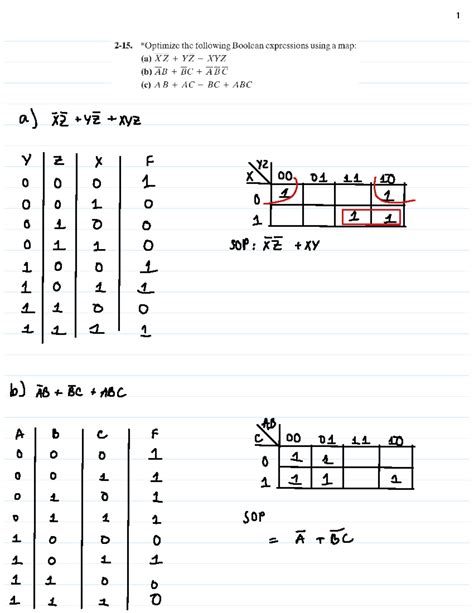 1
2-15. *Optimize the following Boolean expressions using a map:
(a) X̅Z̅ + YZ̅ + XYZ
(b) A̅B + B̅C + A̅B̅C̅
(c) AB + AC + BC + ABC
a) X̅Z̅ + YZ̅ + XYZ
Y Z X F
0 0 0 1
0 0 1 0
0 1 0 0
0 1 1 0
1 0 0 1
1 0 1 1
1 1 0 0
1 1 1 1
YZ
X 00 01 11 10
0 1 1
1 1 1
SOP: X̅Z̅ + XY
b) A̅B + B̅C + ABC
A B C F
0 0 0 1
0 0 1 1
0 1 0 1
0 1 1 1
1 0 0 0
1 0 1 1
1 1 0 0
1 1 1 0
AB
C 00 01 11 10
0 1 1
1 1 1 1
SOP
= A̅ + B̅C